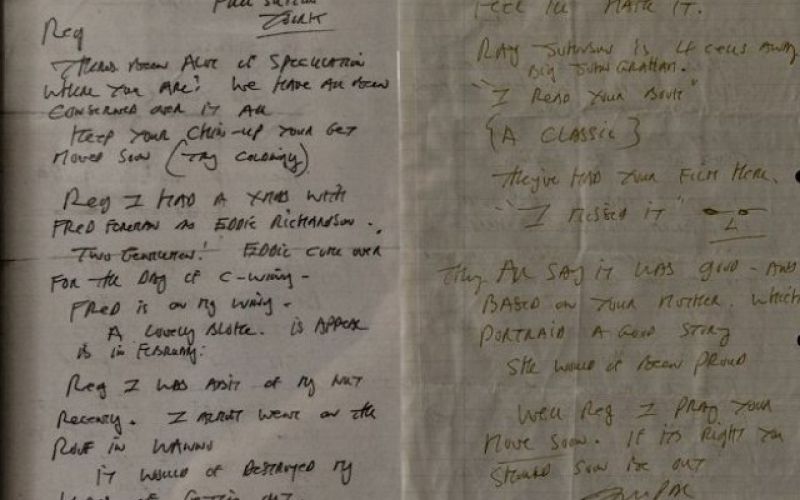 FULL SUTTON
YORK
Reg
Theres been alot of speculation
where you are! We have all been
conserned over it all
Keep your chin-up your get
moved soon (try Coldingly)
Reg I had a Xmas with
Fred Foreman as Eddie Richardson.
Two Gentlemen! Eddie came over
for the day of C-wing -
Fred is on my wing -
A lovely bloke. is appeal
is in February.
Reg I was abit of my nut
recently. I almost went on the
roof in Wanno
it would of destroyed my
of getting out
feel ill hate it.
Ray Johnson is 4 cells away
Big John Graham.
"I read your book"
{A classic}
They've had your film here.
"I missed it"
They all say it was good - and
based on your mother. which
portraid a good story
she would of been proud
Well Reg I pray your
move soon. If its right you
should soon be out